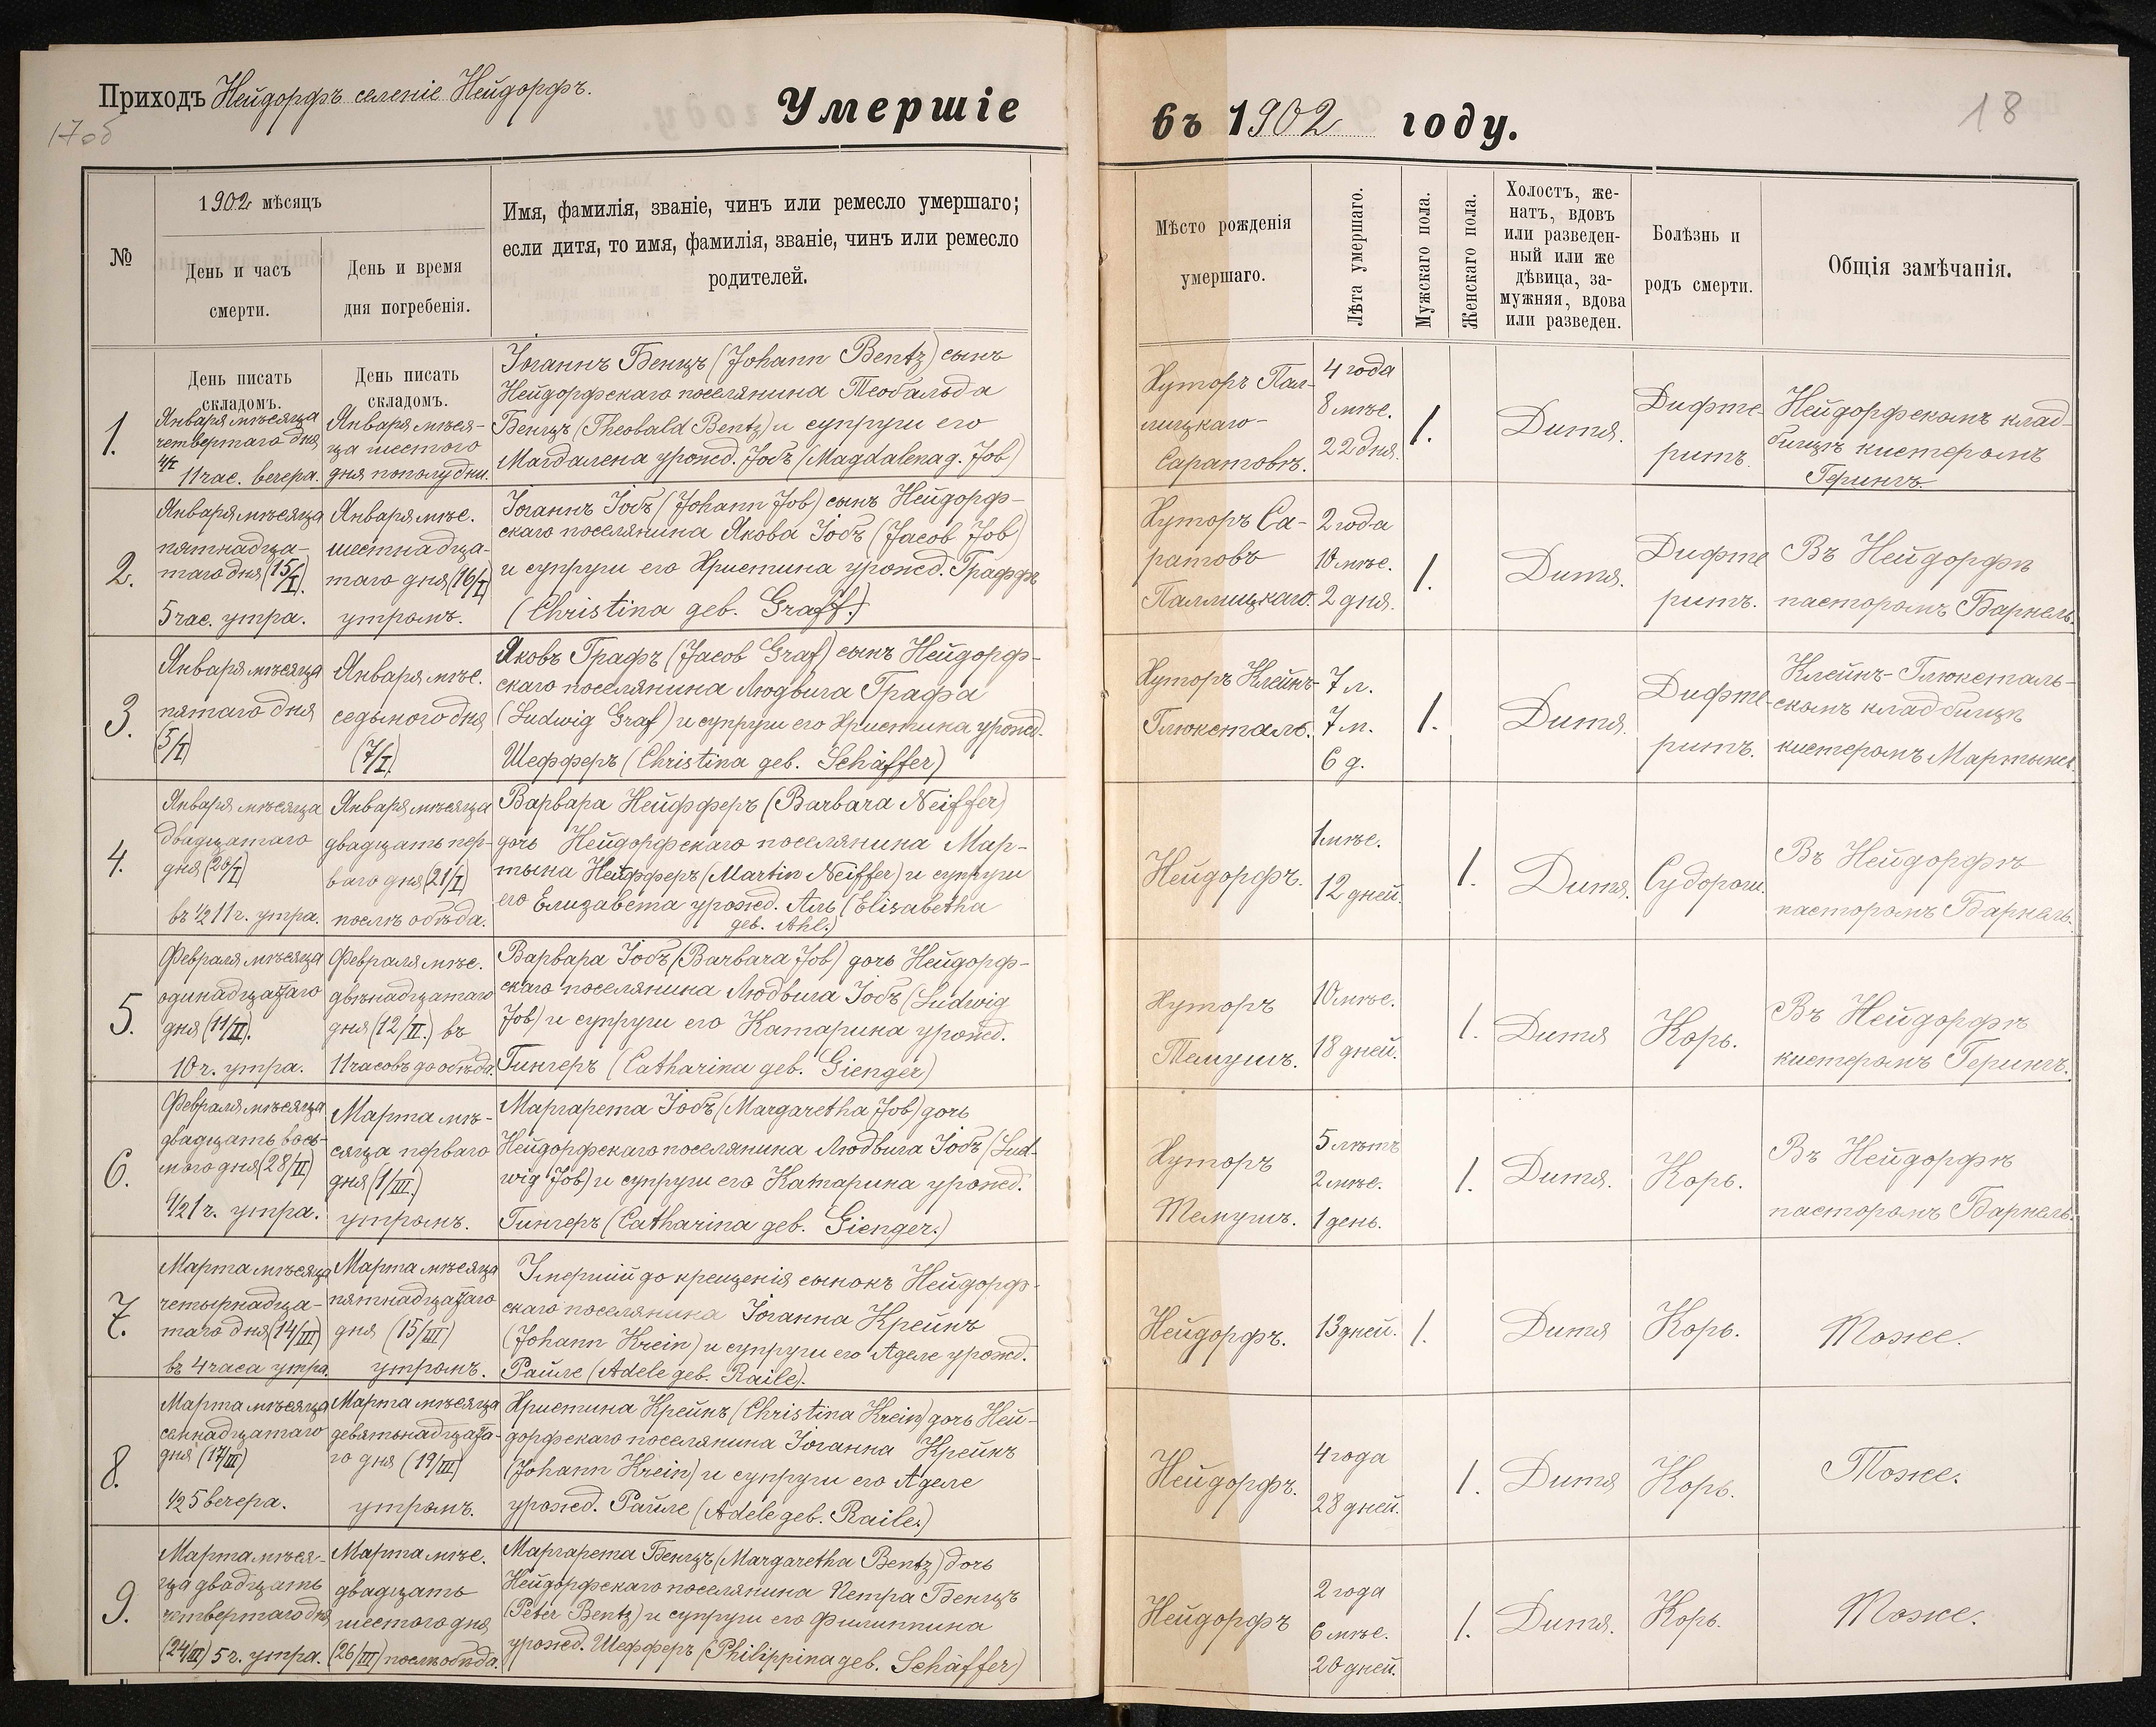 Приходъ Нейдорфъ селеніе Нейдорфъ.
17об
Умершіе
въ 1902 году.
18
№
1902 мѣсяцъ
День и часъ
смерти.
День и время
дня погребенія.
Имя, фамилія, званіе, чинъ или ремесло умершаго;
если дитя, то имя, фамилія, званіе, чинъ или ремесло
родителей.
Мѣсто рожденія
умершаго.
Лѣта умершаго.
Мужскаго пола.
Женскаго пола.
Холостъ, же-
натъ, вдовъ
или разведен-
ный или же
дѣвица, за-
мужняя, вдова
или разведен.
Болѣзнь и
родъ смерти.
Общія замѣчанія.
День писать
складомъ.
День писать
складомъ.
1.
Января мѣсяца
четвертаго дня
4/I
11 час. вечера.
Января мѣся-
ца шестого
дня пополудни.
Іоганнъ Бенцъ (Johann Bentz) сынъ
Нейдорфскаго поселянина Теобальда
Бенцъ (Theobald Bentz) и супруги его
Магдалена урожд. Іобъ (Magdalena g. Job)
Хуторъ Пал-
лицкаго-
Саратовъ.
4 года
8 мѣс.
22 дня.
1.
Дитя.
Дифте-
ритъ.
Нейдорфскомъ клад-
бищѣ кистеромъ
Герингъ
2.
Января мѣсяца
пятнадца-
таго дня (15/I).
5 час. утра.
Января мѣс.
шестнадца-
таго дня (16/I)
утромъ.
Іоганнъ Іобъ (Johann Job) сынъ Нейдорф-
скаго поселянина Якова Іобъ (Jacob Job)
и супруги его Христина урожд. Граффъ
(Christina geb. Graff.)
Хуторъ Са-
ратовъ
Паллицкаго.
2 года
10 мѣс.
2 дня.
1.
Дитя.
Дифте
ритъ.
Въ Нейдорфѣ
пасторомъ Барнель.
3.
Января мѣсяца
пятаго дня
(5/I)
Января мѣс.
седьмого дня
(7/I)
Яковъ Графъ (Jacob Graf) сынъ Нейдорф-
скаго поселянина Людвига Графа
(Ludwig Graf) и супруги его Христина урожд.
Шефферъ (Christina geb. Schäffer)
Хуторъ Клейнъ-
Глюксталь.
7 л.
7 м.
6 д.
1.
Дитя.
Дифте-
ритъ.
Клейнъ-Глюксталь-
скомъ кладбищѣ
кистеромъ
4.
Января мѣсяца
двадцатаго
дня (20/I)
въ ½ 11 ч. утра.
Января мѣсяца
двадцать пер-
ваго дня (21/I)
послѣ обѣда.
Варвара Нейфферъ (Barbara Neiffer)
дочь Нейдорфскаго поселянина Мар-
тына Нейфферъ (Martin Neiffer) и супруги
его Елизавета урожд. Аль (Elisabetha
geb. Ahl.)
Нейдорфъ.
1 мѣс.
12 дней.
1.
Дитя.
Судороги.
Въ Нейдорфѣ
пасторомъ Барнель.
5.
Февраля мѣсяца
одинадцатаго
дня (11/II).
10 ч. утра.
Февраля мѣс.
двѣнадцатаго
дня (12/II.) въ
11 часовъ до обѣда.
Варвара Іобъ (Barbara Job) дочь Нейдорф-
скаго поселянина Людвига Іобъ (Ludwig
Job) и супруги его Катарина урожд.
Гингеръ (Catharina geb. Gienger)
Хуторъ
Темушъ.
10 мѣс.
18 дней.
1.
Дитя
Корь.
Въ Нейдорфѣ
кистеромъ Герингъ.
6.
Февраля мѣсяца
двадцать вось-
мого дня (28/II)
½ 1 ч. утра.
Марта мѣ-
сяца перваго
дня (1/III.)
утромъ.
Маргарета Іобъ (Margaretha Job) дочь
Нейдорфскаго поселянина Людвига Іобъ (Lud-
wig Job) и супруги его Катарина урожд.
Гингеръ (Catharina geb. Gienger.)
Хуторъ
Темушъ.
5 лѣтъ
2 мѣс.
1 день.
1.
Дитя.
Корь.
Въ Нейдорфѣ
пасторомъ Барнель.
7.
Марта мѣсяца
четырнадца-
таго дня (14/III)
въ 4 часа утра.
Марта мѣсяца
пятнадцатаго
дня (15/III)
утромъ.
Умершій до крещенія сынокъ Нейдорф-
скаго поселянина Іоганна Крейнъ
(Johann Krein) и супруги его Аделе урожд.
Райле (Adele geb. Raile).
Нейдорфъ.
13 дней.
1.
Дитя
Корь.
Тоже.
8.
Марта мѣсяца
семнадцатаго
дня (17/III)
½ 5 вечера.
Марта мѣсяца
девятьнадцата-
го дня (19/III)
утромъ.
Христина Крейнъ (Christina Krein) дочь Ней-
дорфскаго поселянина Іоганна Крейнъ
(Johann Krein) и супруги его Аделе
урожд. Райле (Adele geb. Raile.)
Нейдорфъ.
4 года
28 дней.
1.
Дитя
Корь.
Тоже.
9.
Марта мѣся-
ца двадцать
четвертаго дня
(24/III) 5 ч. утра.
Марта мѣс.
двадцать
шестого дня
(26/III) послѣ обѣда.
Маргарета Бенцъ (Margaretha Bentz) дочь
Нейдорфскаго поселянина Петра Бенцъ
(Peter Bentz) и супруги его Филиппина
урожд. Шефферъ (Philippina geb. Schäffer)
Нейдорфъ
2 года
6 мѣс.
20 дней.
1.
Дитя.
Корь.
Тоже.